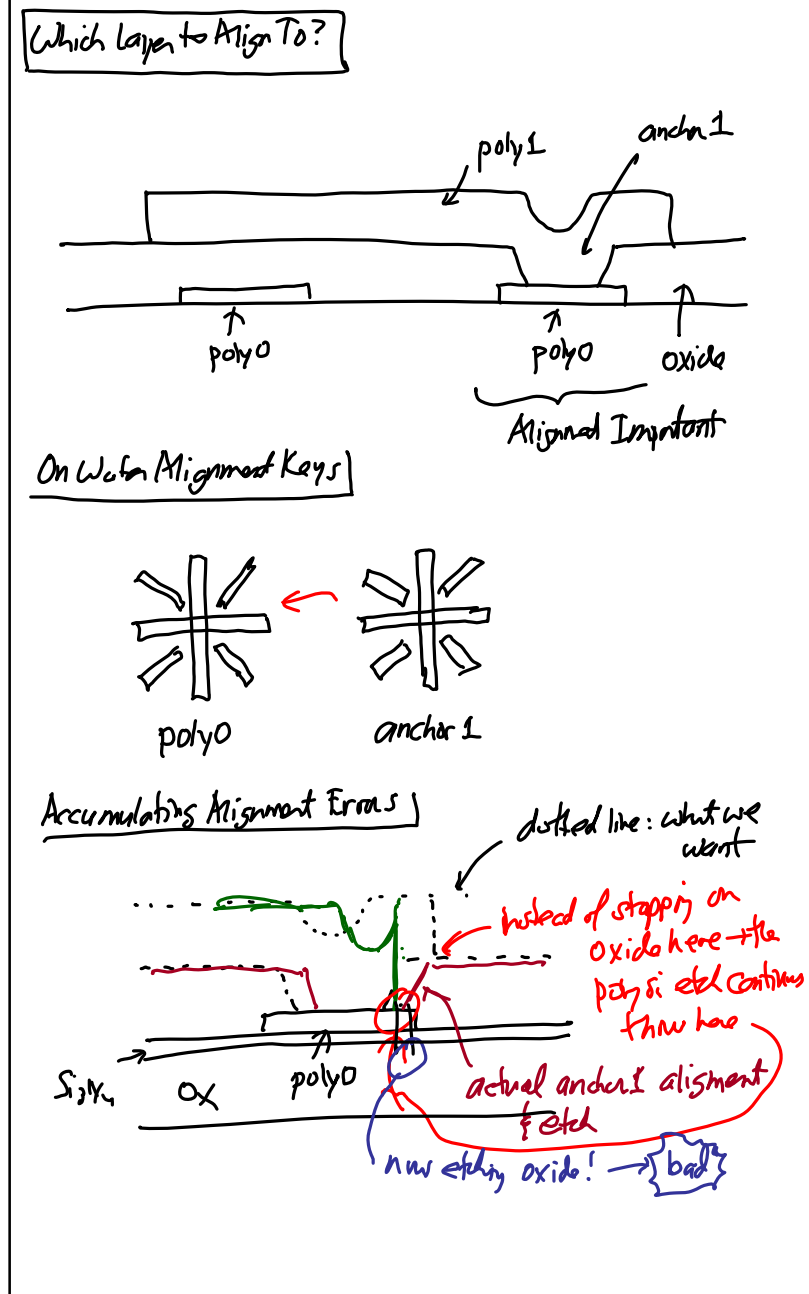 Which Layer to Align To?
poly1
anchor 1
poly0
poly0
oxide
Alignment Important
On Wafer Alignment Keys
poly0
anchor 1
Accumulating Alignment Errors
dotted line: what we
want
instead of stopping on
oxide here → the
poly si etch continues
thru here
Si3N4
OX
poly0
actual anchor1 aligment
& etch
now etching oxide! → bad